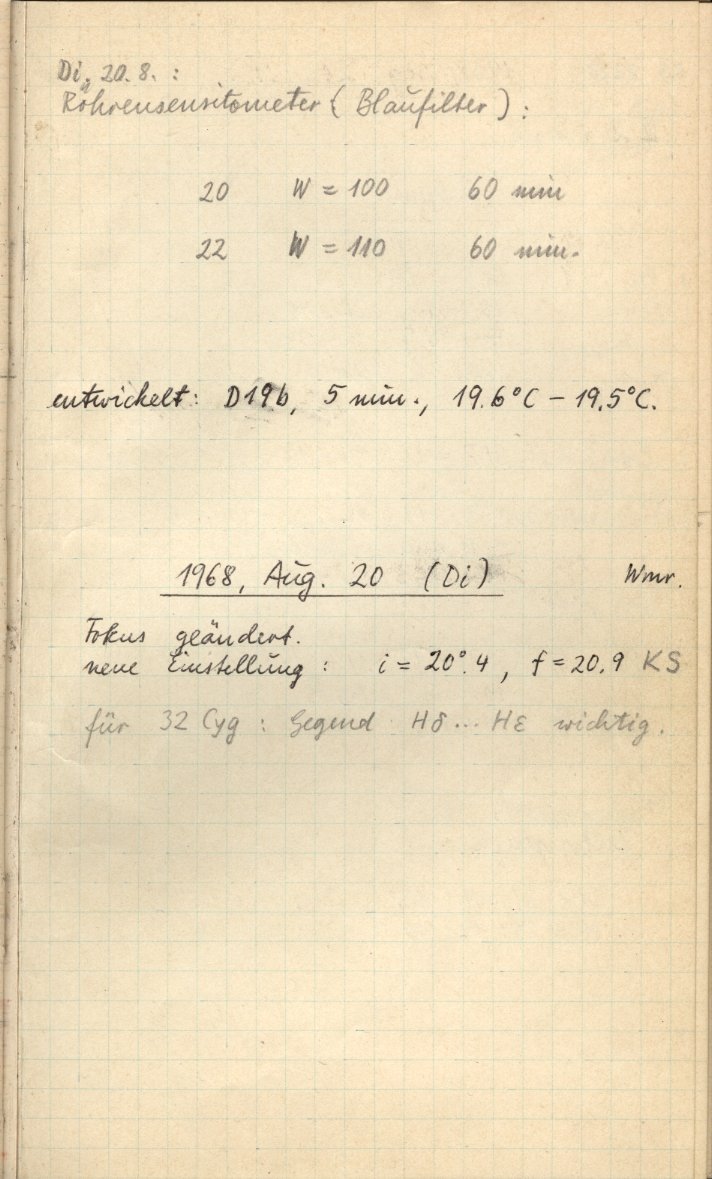 Di, 20.8. :
Röhrensensitometer ( Blaufilter ) :
20 W = 100 60 min
22 W = 110 60 min.
entwickelt: D19b, 5 min., 19.6°C – 19.5°C.
1968, Aug. 20 (Di) Wmr.
Fokus geändert.
neue Einstellung : i = 20°.4 , f = 20.9 KS
für 32 Cyg : Gegend Hδ ... Hε wichtig.